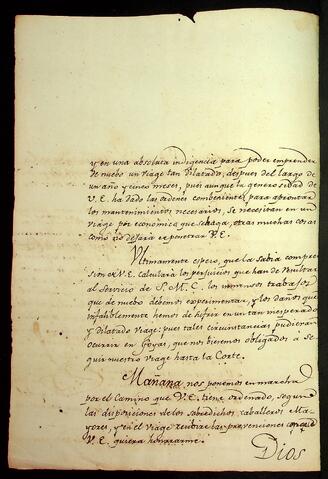 y en una absoluta indigencia para poder emprender
de nuebo un viage tan dilatado, despues del largo de
un año y cinco meses, pues aunque la generosidad de
V.E. ha dado las ordenes combenientes para aprontar
los mantenimientos necesarios, se necesitan en un
viage por economico que se haga, otras muchas cosas
como no dejará de penetrar V.E.
Ultimamente espero, que la sabia compre
sion de V.E. calculará los perjuicios que han de resultar
al servicio de S.M.C. los inmensos trabajos
que de nuebo debemos experimentar, y los daños que
infaliblemente hemos de sufrir en un tan inesperado
y dilatado viage; pues tales circunstancias pudieran
ocurrir en Goyás, que nos bieremos obligados a se
guir nuestro viage hasta la Corte.
Mañana nos ponemos en marcha
por el camino que V.E. tiene ordenado, segun
las disposiciones de los sobredichos caballeros Ma
yores, y en él viage recibire las prevenciones con que
V.E. quiera honrarme.
Dios